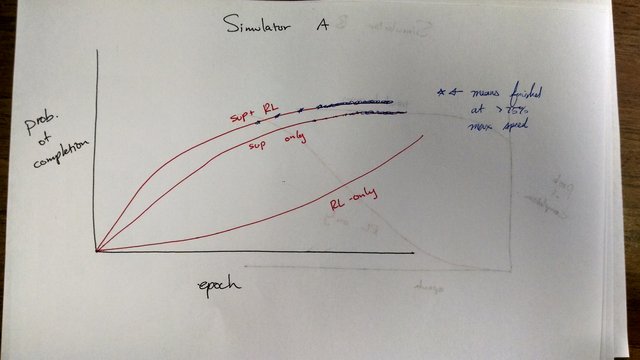 Simulator A
prob.
of
completion
sup+ RL
sup only
RL-only
epoch
** means finished
at >75%
max speed